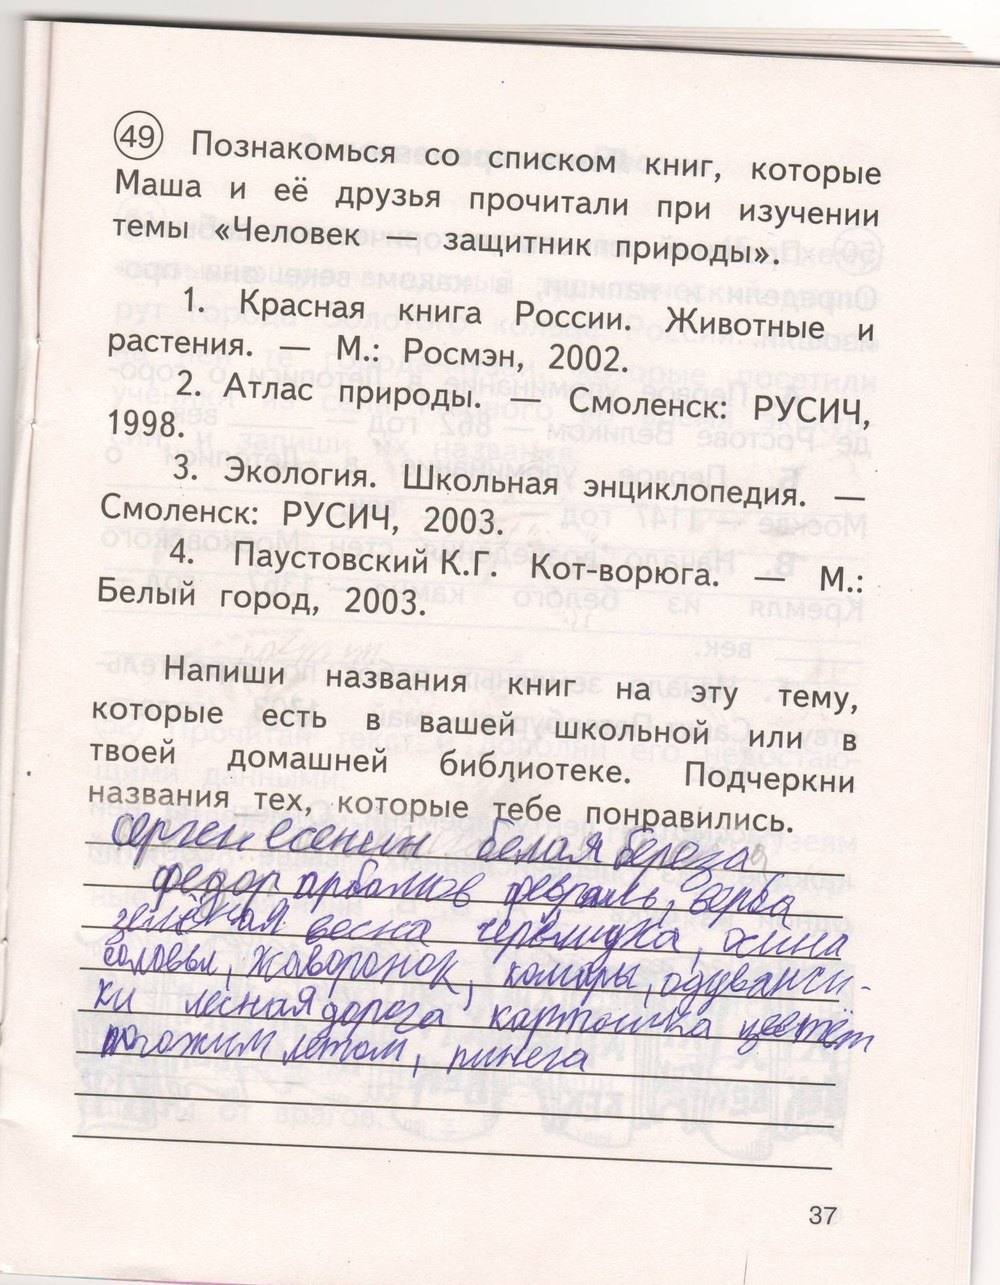 49 Познакомься со списком книг, которые
Маша и её друзья прочитали при изучении
темы «Человек — защитник природы».
1. Красная книга России. Животные и
растения. — М.: Росмэн, 2002.
2. Атлас природы. — Смоленск: РУСИЧ,
1998.
3. Экология. Школьная энциклопедия. —
Смоленск: РУСИЧ, 2003.
4. Паустовский К.Г. Кот-ворюга. — М.:
Белый город, 2003.
Напиши названия книг на эту тему,
которые есть в вашей школьной или в
твоей домашней библиотеке. Подчеркни
названия тех, которые тебе понравились.
Сергей есенин белая береза
федор февраль, верба
зелёная весна черёмушка, осина
соловьи, жаворонок, комары, одуванси-
ки лесная дорога, картошка цветёт
погожим летом, пинега
37